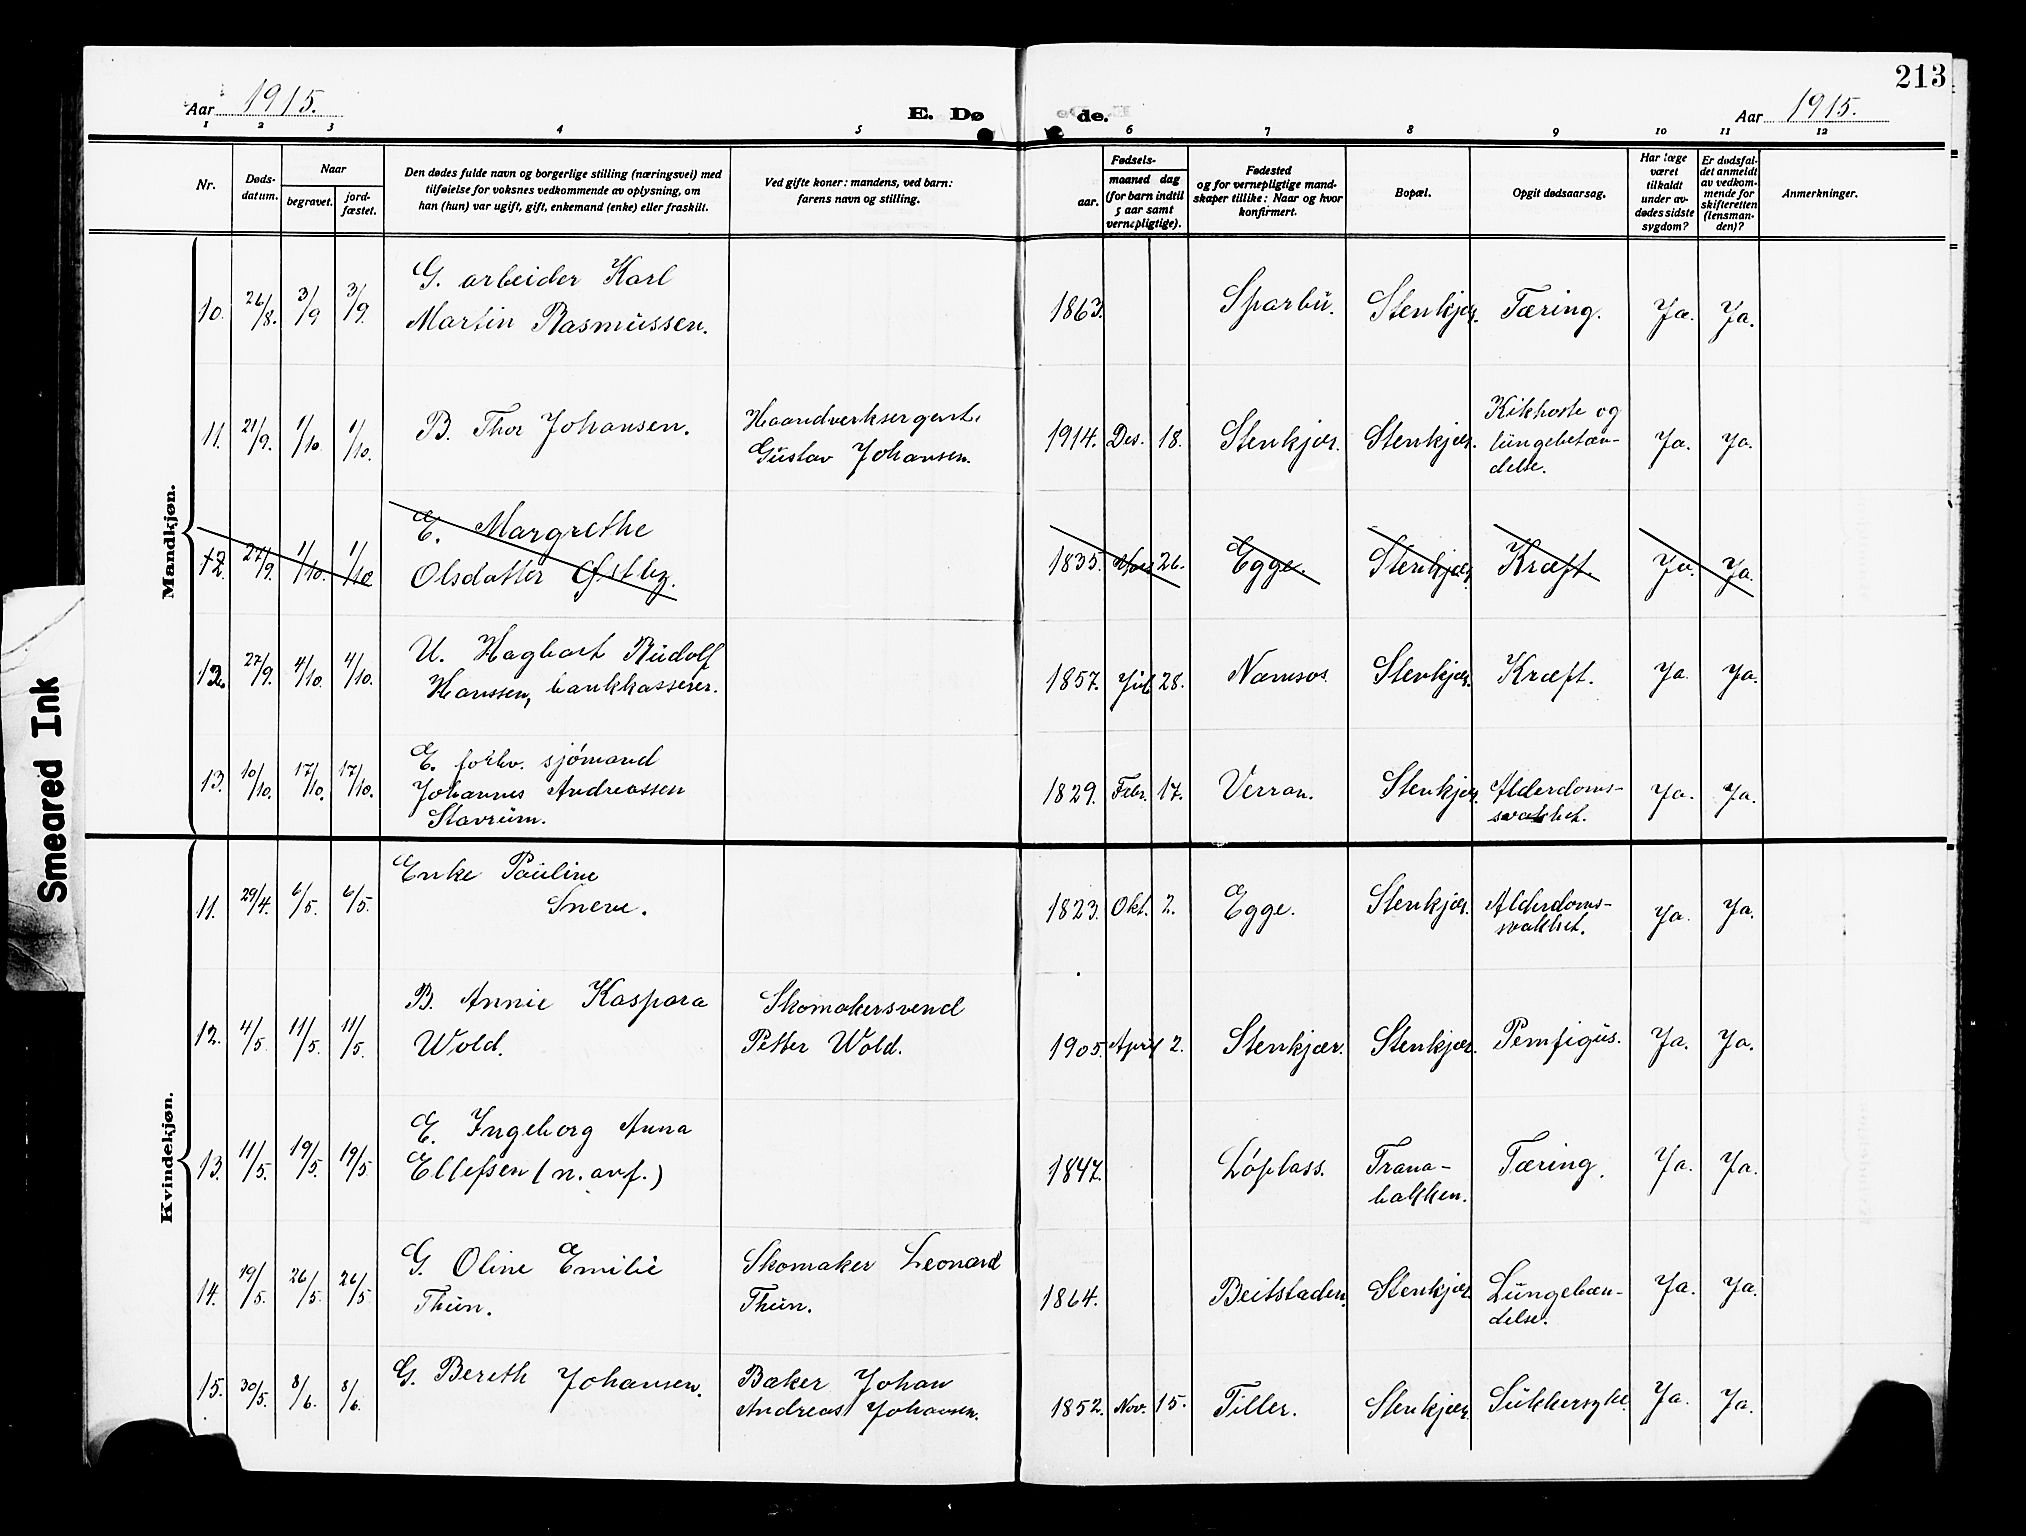 213
Aar 1915.
E. Dø
de.
Aar 1915.
1 2 3 4 5 6 7 8 9 10 11 12
Nr.
Døds-
datum.
Naar
begravet.
jord-
fæstet.
Den dødes fulde navn og borgerlige stilling (næringsvei) med
tilføielse for voksnes vedkommende av oplysning, om
han (hun) var ugift, gift, enkemand (enke) eller fraskilt.
Ved gifte koner: mandens, ved barn:
farens navn og stilling.
Fødsels-
aar.
maaned dag
(for barn indtil
5 aar samt
vernepligtige).
Fødested
og for vernepligtige mand-
skaper tillike: Naar og hvor
konfirmert.
Bopæl.
Opgit dødsaarsag.
Har læge
været
tilkaldt
under av-
dødes sidste
sygdom?
Er dødsfal-
det anmeldt
av vedkom-
mende for
skifteretten
(lensman-
den)?
Anmerkninger.
Mandkjøn.
10. 26/8. 3/9 3/9. G. arbeider Karl
Martin Rasmussen. 1863. Sparbu. Stenkjær. Tæring. Ja. Ja.
11. 21/9. 1/10. 1/10. B. Thor Johansen. Haandverksersgent.
Gustav Johansen. 1914. Des. 18. Stenkjær. Stenkjær. Kikhoste og
lungebetæn-
delse. Ja. Ja.
12. 27/9. 1/10. 1/10 E. Margrethe
Olsdatter Østby. 1835. 26. Egge. Stenkjær. Kræft. Ja. Ja.
12. 27/9. 4/10. 4/10. U. Hagbart Rudolf
Hanssen, bankkasserer. 1857. Jul 28. Namsos. Stenkjær. Kræft. Ja. Ja.
13. 10/10. 17/10. 17/10. E. forhv. sjømand
Johannes Andreassen
Stavrum. 1829. Febr. 17. Verran. Stenkjær. Alderdoms-
svakhet. Ja. Ja.
Kvindekjøn.
11. 29/4. 6/5. 6/5. Enke Pauline
Sneve. 1823. Okt. 2. Egge. Stenkjær. Alderdoms-
svakhet. Ja. Ja.
12. 4/5. 11/5. 11/5. B. Annie Kaspara
Wold. Skomakersvend
Petter Wold. 1905. April 2. Stenkjær. Stenkjær. Pemfigus. Ja. Ja.
13. 11/5. 19/5. 19/5 E. Ingeborg Anna
Ellefsen (n. avf.) 1847. Løplass. Trana-
bakken. Tæring. Ja. Ja.
14. 19/5. 26/5. 26/5 G. Oline Emilie
Thun. Skomaker Leonard
Thun. 1864. Beitstaden. Stenkjær Lungebæn-
delse. Ja. Ja.
15. 30/5. 8/6. 8/6. G. Bereth Johansen. Baker Johan
Andreas Johansen. 1852. Nov. 15. Tiller. Stenkjær. Sukkersyke. Ja. Ja.
Smeared Ink